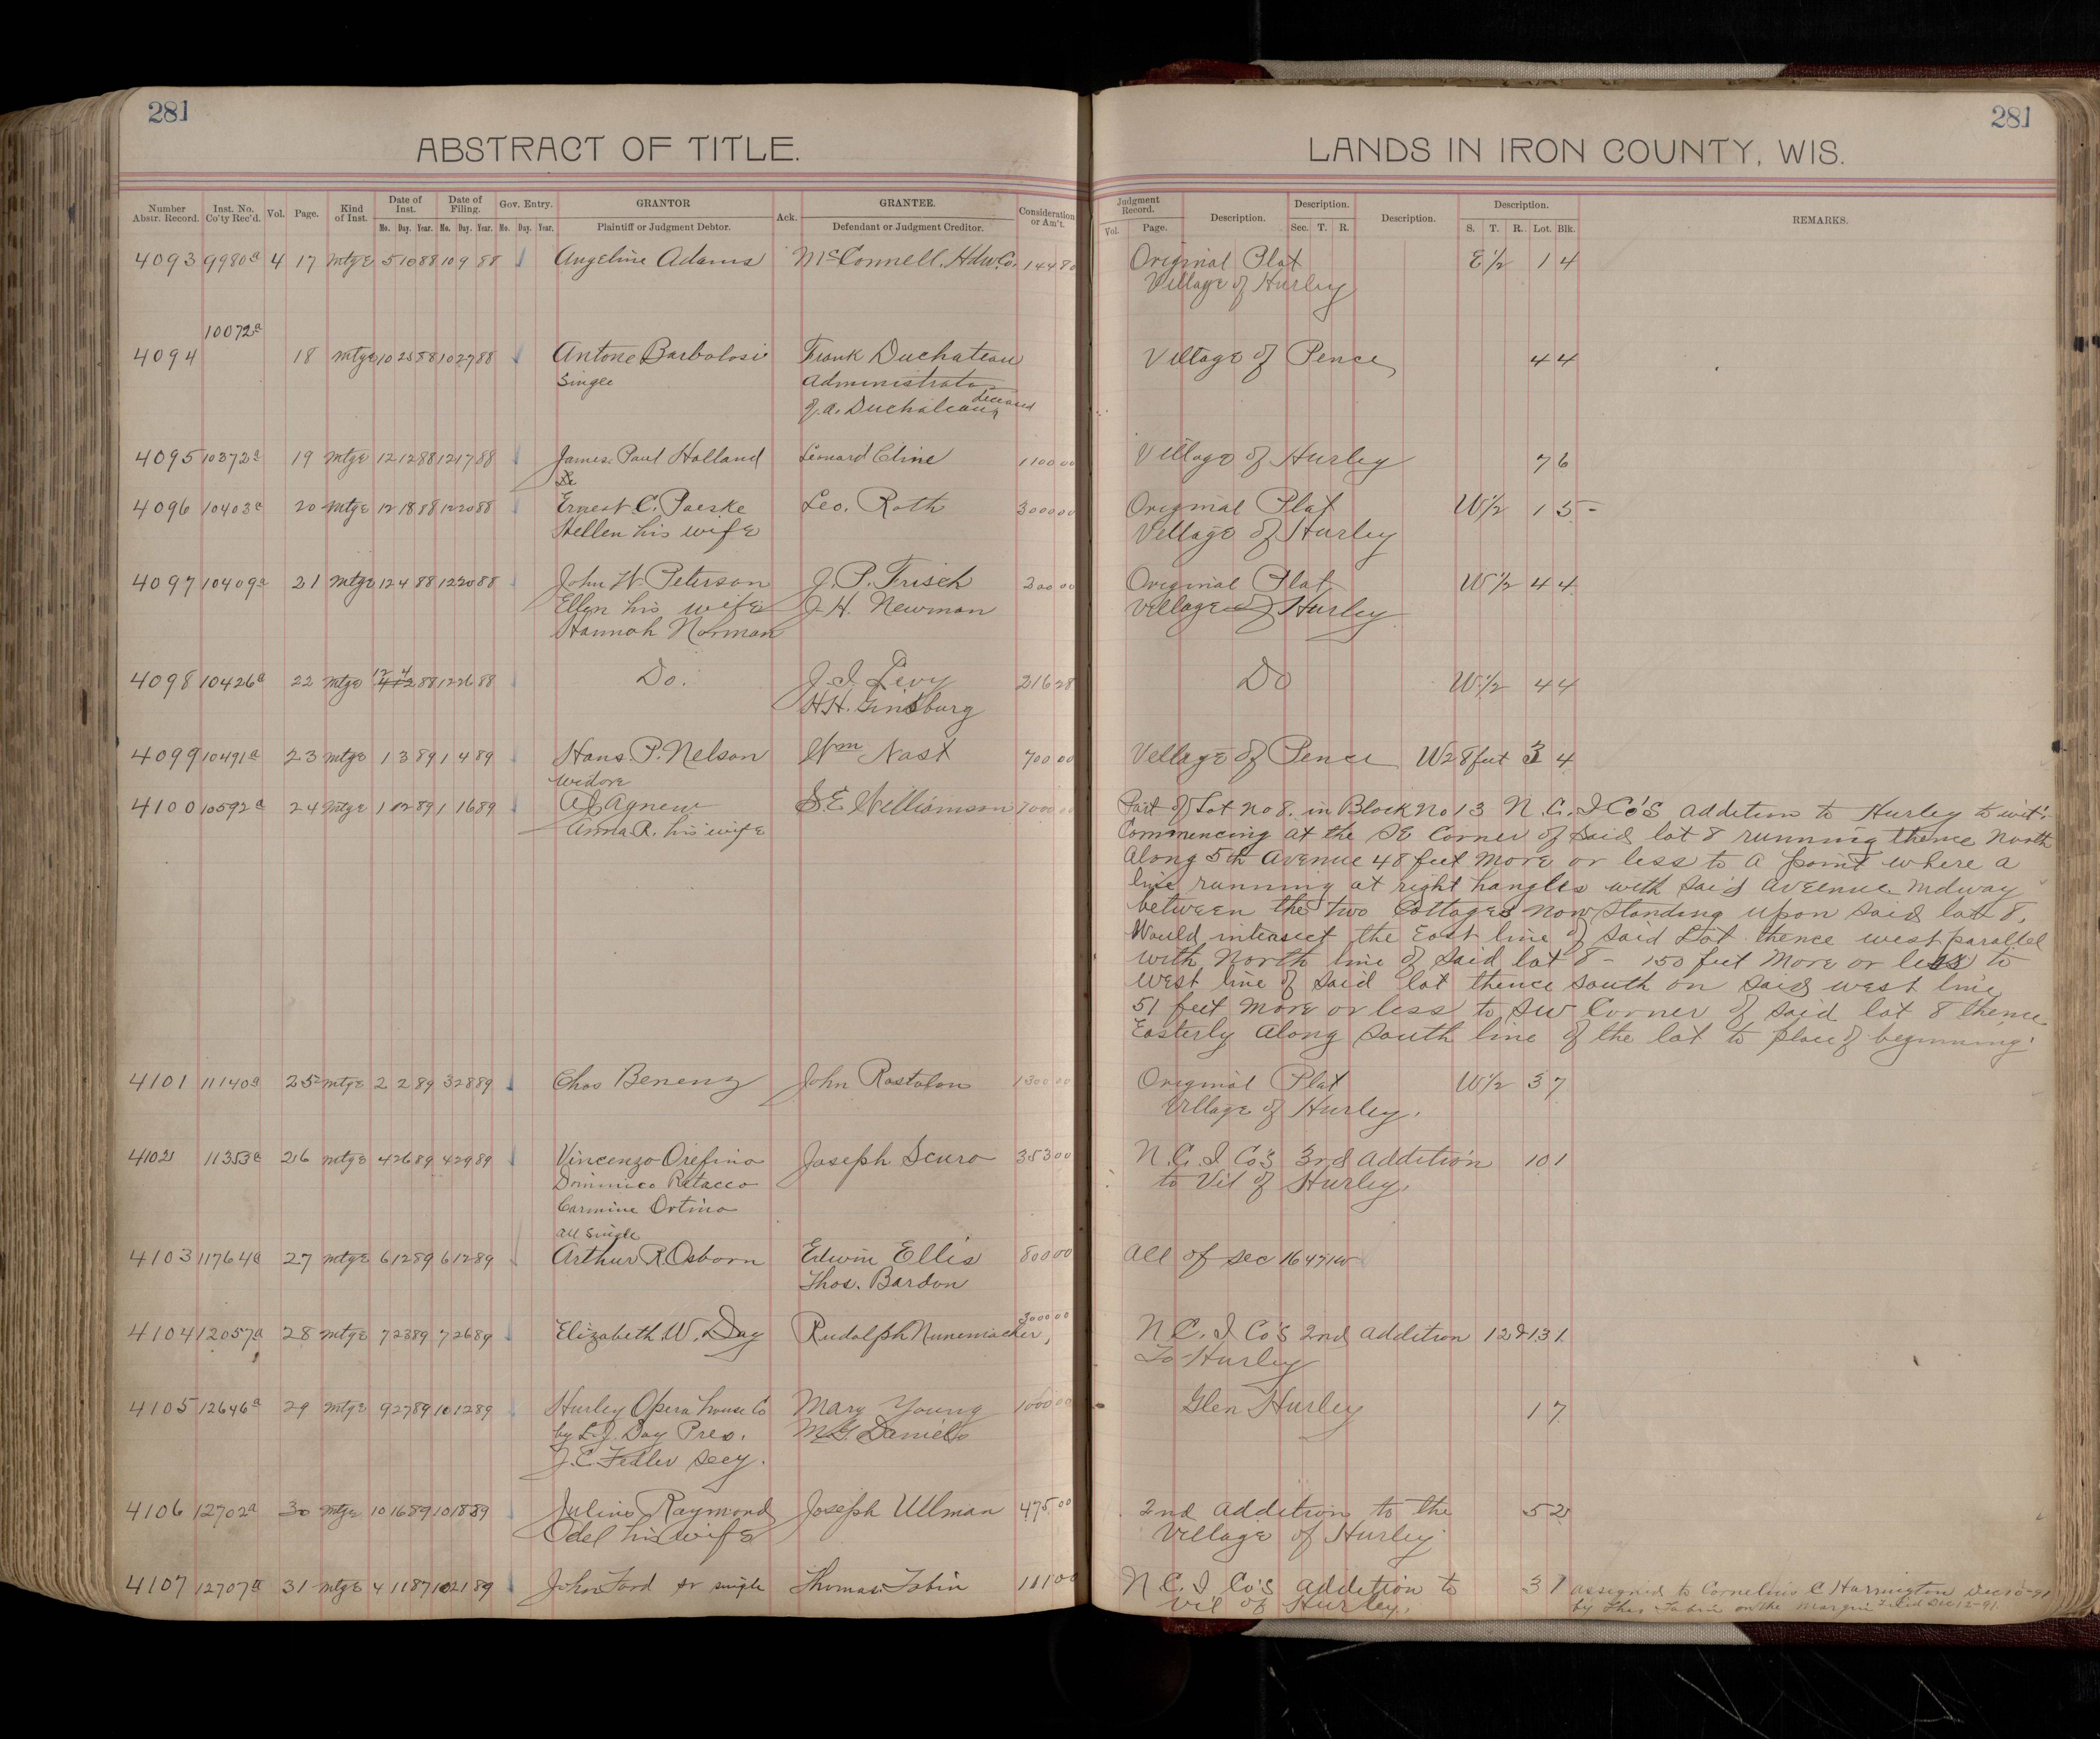 281
281
ABSTRACT OF TITLE.
LANDS IN IRON COUNTY, WIS.
Number Abstr. Record. Inst. No. Co'ty Rec'd. Vol. Page. Kind of Inst. Date of Inst. Date of Filing. Gov. Entry. GRANTOR Ack. GRANTEE. Consideration or Am't. Judgment Record. Description. Description. Description. Description. REMARKS.
Mo. Day. Year. Mo. Day. Year. Mo. Day. Year. Plaintiff or Judgment Debtor. Defendant or Judgment Creditor. Vol. Page. Sec. T. R. S. T. R. Lot. Blk.
4093 9980a 4 17 mtge 5 10 88 10 9 88 Angeline Adams McConnell Hdw Co. 144 80 Original Plat E 1/2 1 4
Village of Hurley
10072a
4094 18 mtge 10 25 88 10 27 88 Antone Barbolosi Frank Duchateau Village of Pence 4 4
Single Administrator
of A. Duchateau deceased
4095 10372a 19 mtge 12 12 88 12 17 88 James Paul Holland Lennard Cline 1100 00 Village of Hurley 7 6
4096 10403a 20 mtge 12 18 88 12 20 88 Ernest C. Paeske Leo. Roth 3000 00 Original Plat W 1/2 1 5
Hellen his wife Village of Hurley
4097 10409a 21 mtge 12 4 88 12 20 88 John W. Peterson J. P. Frisch 200 00 Original Plat W 1/2 4 4
Ellen his wife J. H. Newman Village of Hurley
Hannah Norman
4098 10426a 22 mtge 12 4 88 12 26 88 Do. J. I. Levy 216 28 Do W 1/2 4 4
H H. Ginsburg
4099 10491a 23 mtge 1 3 89 1 4 89 Hans P. Nelson Wm Nast 700 00 Village of Pence W 28 feet 3 4
widore
4100 10592a 24 mtge 1 12 89 1 16 89 Al Agnew S. E. Williamson 1000 Part of Lot No 8. in Block No 13 N. C. I Co's addition to Hurley to wit:
Anna R. his wife Commencing at the SE Corner of said lot 8 running thence North
along 5th avenue 48 feet more or less to a point where a
line running at right hangles with said aveenue mdway
between the two cottages now standing upon said lot 8,
Would intersect the East line of said Lot thence west parallel
with North line of said lot 8 - 150 feet more or less to
west line of said lot thence south on said west line
51 feet more or less to SW Corner of said lot 8 thence
Easterly along south line of the lot to place of beginning.
4101 11140a 25 mtge 2 2 89 3 28 89 Chas Benenz John Rostolon 1300 00 Original Plat W 1/2 3 7
Village of Hurley.
4102 11353a 26 mtge 4 26 89 4 29 89 Vincenzo Orefino Joseph Scuro 353 00 N. C. I Co's 3rd addition 10 1
Dominico Ratacco to Vil of Hurley.
Carmine Ortino
all single
4103 11764a 27 mtge 6 12 89 6 12 89 Arthur R. Osborn Edwin Ellis 800 00 All of sec 16 47 1W
Thos. Bardon
4104 12057a 28 mtge 7 23 89 7 26 89 Elizabeth W. Day Rudolph Nunemacher, 3000 00 N. C. I Co's 2nd addition 12 & 13 1
To Hurley
4105 12646a 29 mtge 9 27 89 10 12 89 Hurley Opera house Co Mary Young 1000 00 Glen Hurley 1 7
by L. J. Day Pres. M. G. Daniels
J. C. Fedler Secy.
4106 12702a 30 mtge 10 16 89 10 18 89 Julius Raymond Joseph Ullman 475 00 2nd addition to the 5 2
Odel his wife Village of Hurley
4107 12707a 31 mtge 4 11 87 10 21 89 John Ford sr single Thomas Tobin 111 00 N. C. I Co's addition to 3 7 assigned to Cornelius C Harrington Dec 10-91
Vil of Hurley. by Thos Tobin on the margin Filed Dec 12-91.